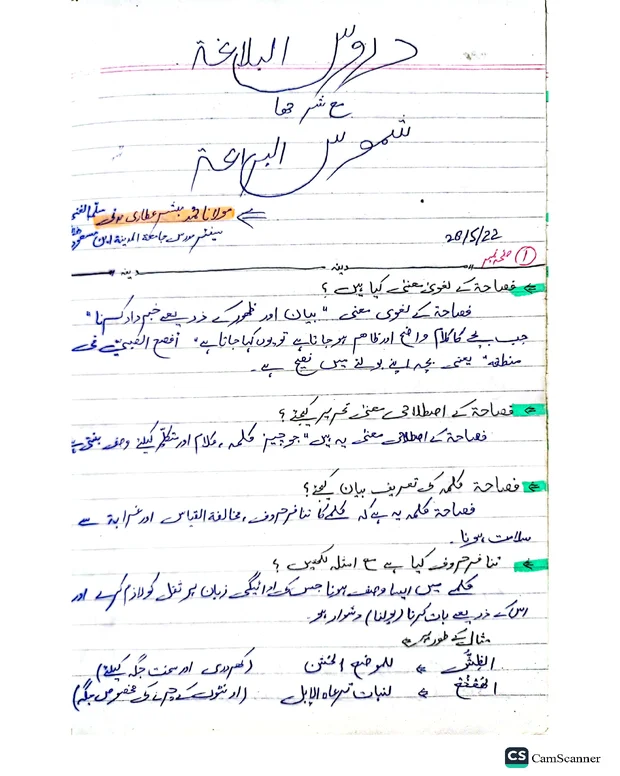 دروس البلاغة
مع شرحها
شموس البراعة
مولانا محمد مبشر عطاری مدنی سلمہ الغنی
سینئر مدرس جامعۃ المدینہ ابن مسعود
28/5/22
صفحہ نمبر ①
مدینہ مدینہ
فصاحة کے لغوی معنیٰ کیا ہیں ؟
فصاحة کے لغوی معنی "بیان اور ظہور کے ذریعے خبردار کرنا"
جب بچے کا کلام واضح اور ظاہر ہو جاتا ہے تو یوں کہا جاتا ہے "أفصح الصبيّ في
منطقه" یعنی بچہ اپنے بولنے میں فصیح ہے ۔
فصاحة کے اصطلاحی معنیٰ تحریر کیجئے ؟
فصاحة کے اصطلاحی معنیٰ یہ ہیں "جو چیز کلمہ ، کلام اور متکلّم کیلئے وصف بنتی ہے
فصاحة کلمہ کی تعریف بیان کیجئے ؟
فصاحة کلمہ یہ ہے کہ کلمے کا تنافر حروف ، مخالفة القیاس اور غرابة سے
سلامت ہونا ۔
تنافر حروف کیا ہے مع امثلہ لکھیں ؟
کلمے میں ایسا وصف ہونا جس کی ادائیگی زبان پر ثقل کو لازم کرے اور
اس کے ذریعے بات کرنا (بولنا) دشوار ہو ۔
مثال کے طور پر
الظشّ للموضع الخشن (کھردری اور سخت جگہ کیلئے)
الهُعْخُع لنبات ترعاه الإبل (اونٹوں کے چرنے کی مخصوص جگہ)
CS CamScanner